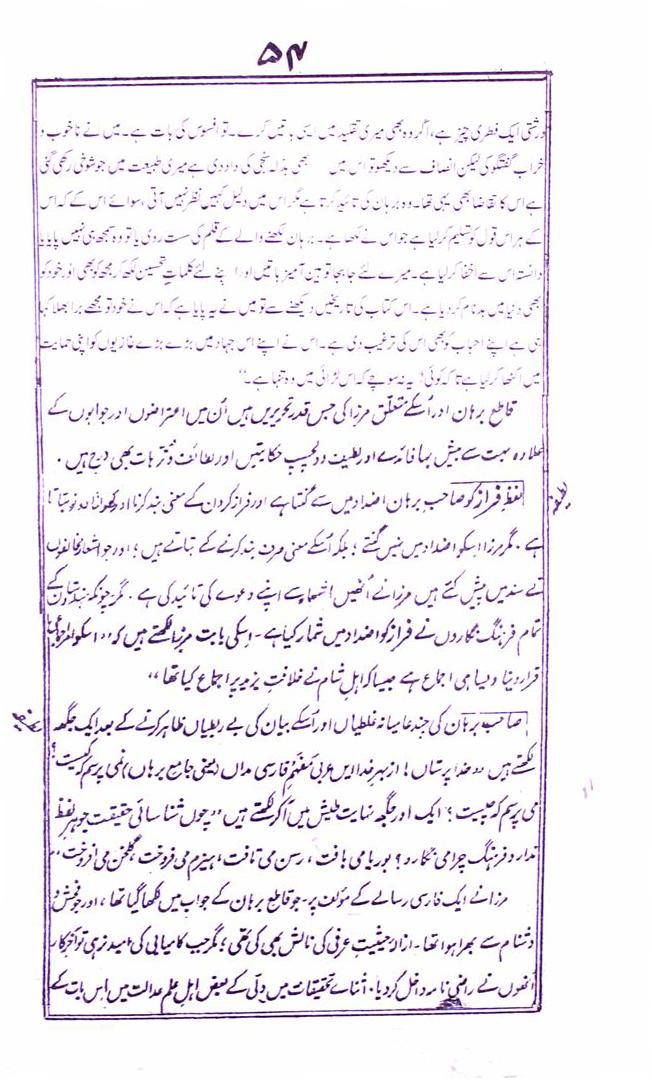 ۵۴
درشتی ایک فطری چیز ہے، اگر وہ بھی میری تقلید میں ایسی باتیں کرے۔ تو افسوس کی بات ہے۔ میں نے ناخوب و
خراب گفتگو کی لیکن انصاف سے دیکھو تو اس میں بھی بذلہ سنجی کی داد دی ہے میری طبیعت میں جو شوخی رکھی گئی
ہے اس کا تقاضا بھی یہی تھا۔ وہ برہان کی تائید کرتا ہے مگر اس میں دلیل کہیں نظر نہیں آتی، سوائے اس کے کہ اس
کے ہر اس قول کو تسلیم کر لیا ہے جو اس نے لکھا ہے۔ برہان لکھنے والے کے قلم کی سست روی یا تو وہ سمجھ ہی نہیں پایا یا
دانستہ اس سے اخفا کر لیا ہے۔ میرے لئے جا بجا توہین آمیز باتیں اور اپنے لئے کلمات تحسین لکھ کر مجھ کو بھی اور خود کو
بھی دنیا میں بدنام کر دیا ہے۔ اس کتاب کی تاریخیں دیکھنے سے تو میں نے یہ پایا ہے کہ اس نے خود تو مجھے برا بھلا کہا
ہی ہے اپنے احباب کو بھی اس کی ترغیب دی ہے۔ اس نے اپنے اس جہاد میں بڑے بڑے غازیوں کو اپنی حمایت
میں اکٹھا کر لیا ہے تاکہ کوئی یہ نہ سوچے کہ اس لڑائی میں وہ تنہا ہے۔"
قاطع برہان اور اُسکے متعلق مرزا کی جس قدر تحریریں ہیں اُن میں اعتراضوں اور جوابوں کے
علاوہ بہت سے بیش بہا فائدے اور لطیف و دلچسپ حکایتیں اور لطائف و ترہات بھی درج ہیں.
لفظ فراز کو صاحبِ برہان اضداد میں سے گنتا ہے اور فراز کردن کے معنی بند کرنا اور کھولنا دونو بتاتا
ہے. مگر مرزا اسکو اضداد میں نہیں گنتے؛ بلکہ اُسکے معنی صرف بند کرنے کے بتاتے ہیں؛ اور جو اشعار مخالفوں
نے سند میں پیش کئے ہیں مرزا نے اُنہیں اشعار سے اپنے دعوے کی تائید کی ہے. مگر چونکہ ہندوستان کے
تمام فرہنگ نگاروں نے فراز کو اضداد میں شمار کیا ہے۔ اسکی بابت مرزا لکھتے ہیں کہ "اسکو امرِ اجماعی
قرار دینا ویسا ہی اجماع ہے جیسا کہ اہلِ شام نے خلافتِ یزید پر اجماع کیا تھا"
صاحب برہان کی چند عامیانہ غلطیاں اور اُسکے بیان کی بے ربطیاں ظاہر کرنے کے بعد ایک جگہ
لکھتے ہیں "خدا پرستاں! از بہرِ خدا ایں عربی مفہمِ فارسی مداں (یعنی جامع برہاں) نمی پرسم کہ کیست؟
می پرسم کہ چیست؟ ایک اور جگہ نہایت طیش میں آکر لکھتے ہیں "چوں شناسائی حقیقت جوہرِ لفظ
ندارد فرہنگ چرا می نگارد؟ بوریا می بافت، رسن می تافت، ہیزم می فروخت، گلخن می افروخت"
مرزا نے ایک فارسی رسالے کے مؤلف پر۔ جو قاطع برہان کے جواب میں لکھا گیا تھا، اور جو فحش و
دشنام سے بھرا ہوا تھا۔ ازالہ حیثیتِ عرفی کی نالش بھی کی تھی؛ مگر جب کامیابی کی امید نرہی تو آخر کار
اُنھوں نے راضی نامہ داخل کر دیا. اثناے تحقیقات میں دلّی کے بعض اہلِ علم عدالت میں اِس بات کے